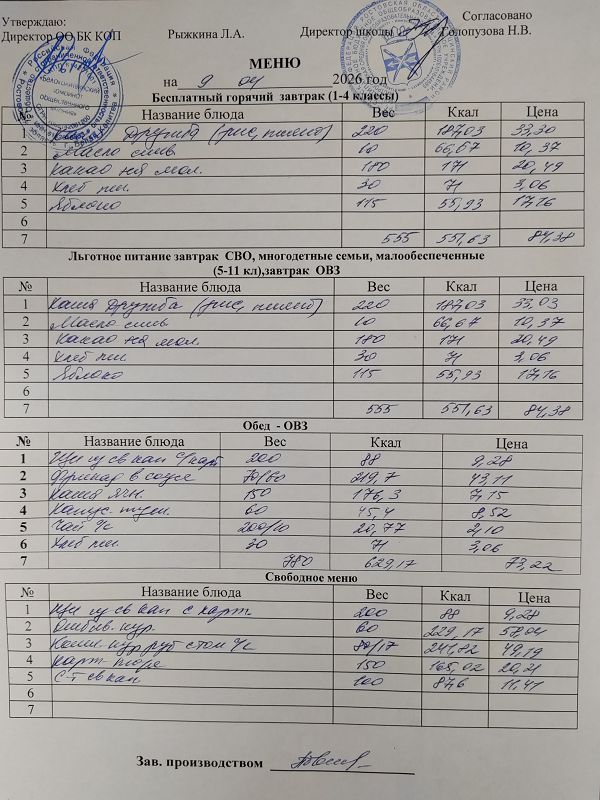 Утверждаю: Согласовано
Директор ОО БК КОП Рыжкина Л.А. Директор школы Голопузова Н.В.
МЕНЮ
на 9 04 2026 год
Бесплатный горячий завтрак (1-4 классы)
№ Название блюда Вес Ккал Цена
1 Каша Дружба (рис, пшено) 220 187,03 33,30
2 Масло слив. 10 66,67 10,37
3 Какао на мол. 180 171 20,49
4 Хлеб пш. 30 71 3,06
5 Яблоко 115 55,93 17,16
6
7 555 551,63 84,38
Льготное питание завтрак СВО, многодетные семьи, малообеспеченные
(5-11 кл),завтрак ОВЗ
№ Название блюда Вес Ккал Цена
1 Каша Дружба (рис, пшено) 220 187,03 33,03
2 Масло слив 10 66,67 10,37
3 Какао на мол. 180 171 20,49
4 Хлеб пш. 30 71 3,06
5 Яблоко 115 55,93 17,16
6
7 555 551,63 84,38
Обед - ОВЗ
№ Название блюда Вес Ккал Цена
1 Щи из св кап с/карт 200 88 9,28
2 Фрикад в соусе 70/60 219,7 43,11
3 Каша ячн. 150 176,3 7,15
4 Капус. туш. 60 45,4 8,52
5 Чай 200/10 20,77 2,10
6 Хлеб пш. 30 71 3,06
7 780 629,17 73,22
Свободное меню
№ Название блюда Вес Ккал Цена
1 Щи из св кап с карт 200 88 9,28
2 Отбив. кур 60 229,17 58,04
3 80/17 241,82 49,19
4 Карт пюре 150 165,02 20,21
5 С-т св кап 100 87,6 11,41
6
7
Зав. производством